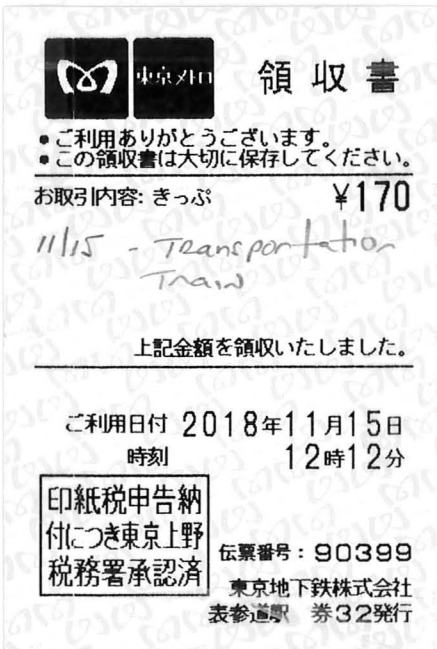 東京メトロ 領収書
•ご利用ありがとうございます。
•この領収書は大切に保存してください。
お取引内容: きっぷ ¥170
11/15 - Transportation
Train
上記金額を領収いたしました。
ご利用日付 2018年11月15日
時刻 12時12分
印紙税申告納
付につき東京上野
税務署承認済
伝票番号：90399
東京地下鉄株式会社
表参道駅 券32発行